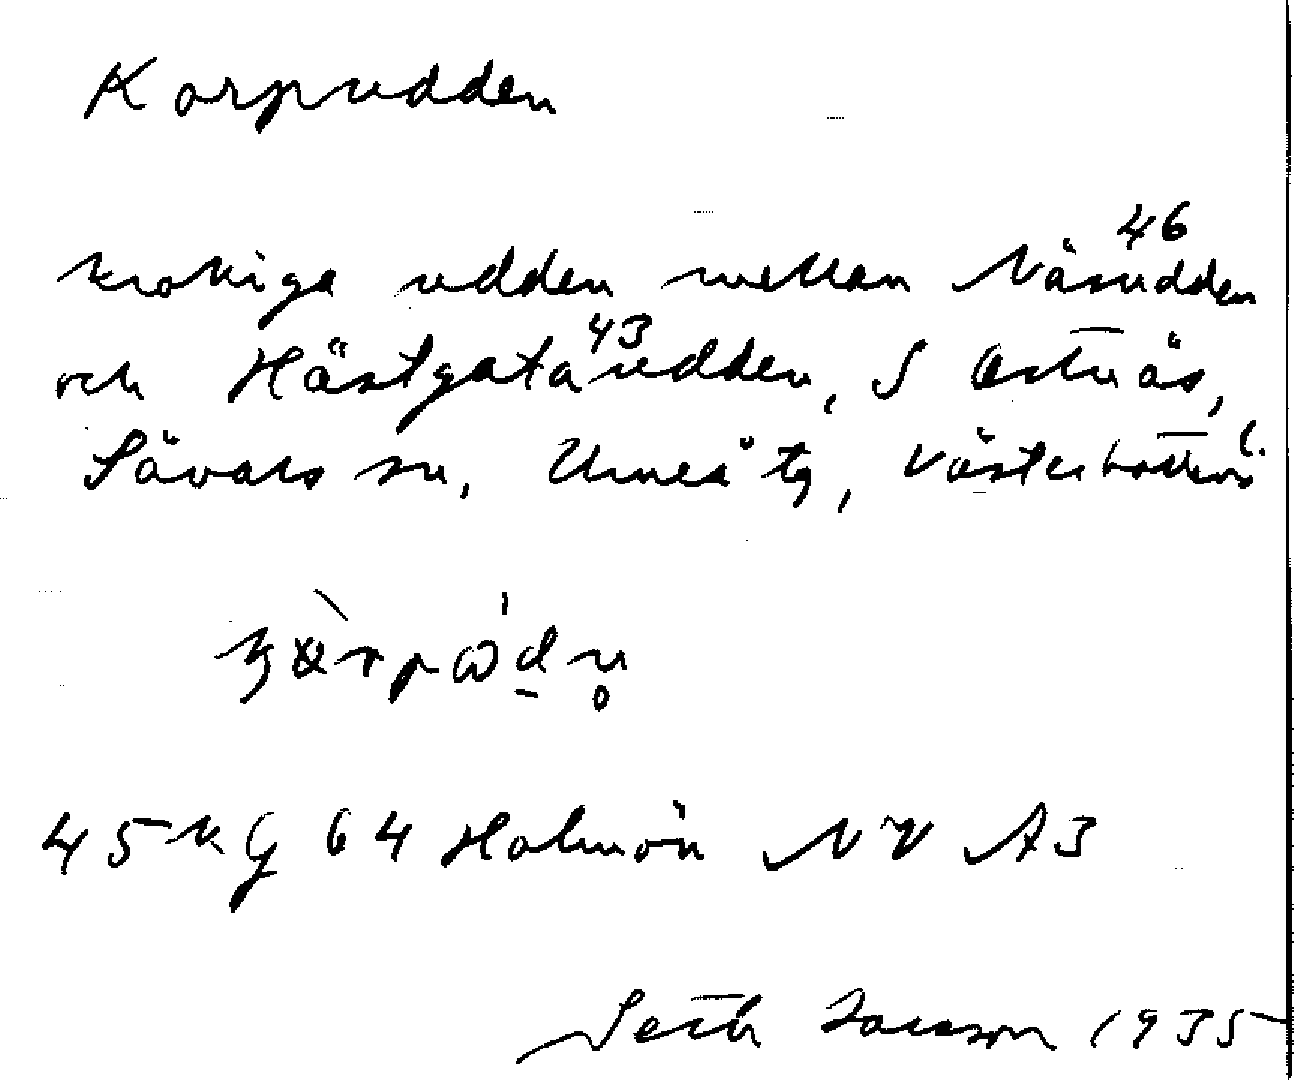 Korpudden
krokiga udden mellan Näsudden 46
och Hästgataudden 43, S Ostnäs,
Sävars sn, Umeå tg, Västerbottens l.
45 kg 64 Holmön NV A3
Seth Jansson 1935